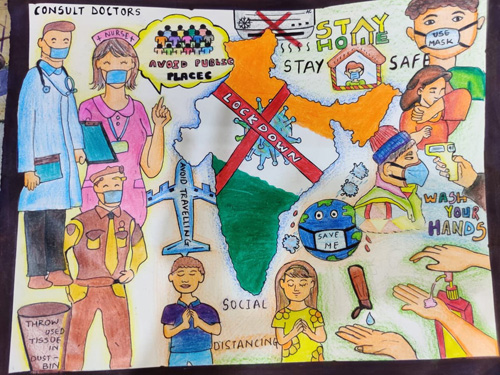 CONSULT DOCTORS
+ NURSE +
AVOID PUBLIC
PLACES
STAY
HOME
STAY SAFE
USE
MASK
LOCKDOWN
AVOID TRAVELLING
SAVE
ME
WASH
YOUR
HANDS
SOCIAL
DISTANCING
THROW
USED
TISSUE
IN
DUST-
BIN